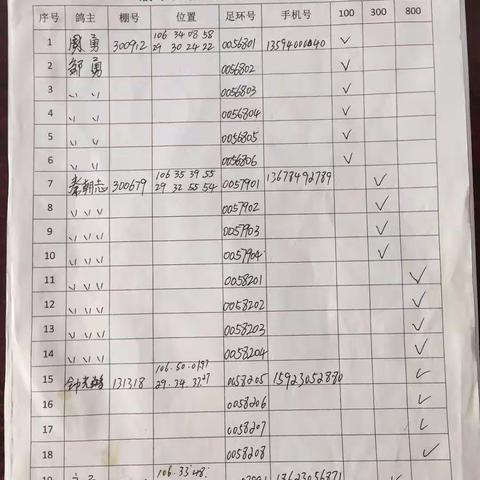 序号 鸽主 棚号 位置 足环号 手机号 100 300 800
1 周勇 300912 106 34 08 58 0056801 13594000840 ✓
29 30 24 22
2 邹勇 0056802 ✓
3 〃 〃 0056803 ✓
4 〃 〃 0056804 ✓
5 〃 〃 0056805 ✓
6 〃 〃 0056806 ✓
7 秦朝志 300679 106 35 39 55 0057901 13678492789 ✓
29 32 55 54
8 〃 〃 〃 0057902 ✓
9 〃 〃 〃 0057903 ✓
10 〃 〃 〃 0057904 ✓
11 〃 〃 〃 0058201 ✓
12 〃 〃 〃 0058202 ✓
13 〃 〃 〃 0058203 ✓
14 〃 〃 〃 0058204 ✓
15 131318 106.50.0197 0058205 15923052880 ✓
29.24.37.47
16 0058206 ✓
17 0058207 ✓
18 0058208 ✓
106.33.48. 13623056871